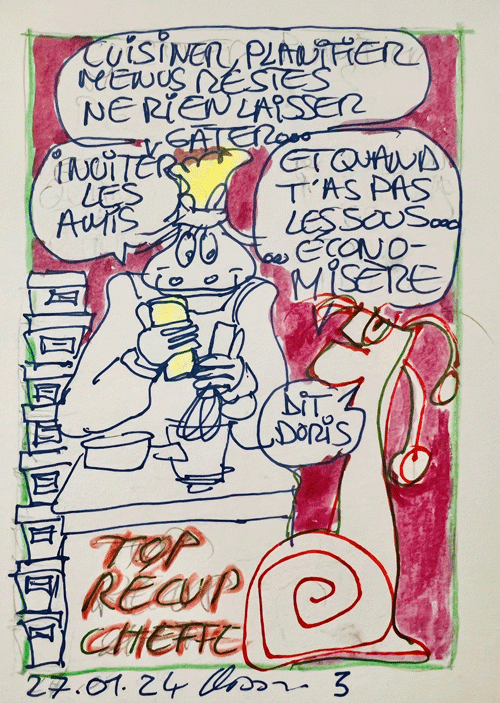 CUISINER, PLANIFIER
MENUS RESTES
NE RIEN LAISSER
GATER...
INVITER
LES
AMIS
ET QUAND
T'AS PAS
LES SOUS...
...ECONO-
MISERE
DIT
DORIS
TOP
RECUP
CHEFFE
27.01.24
3